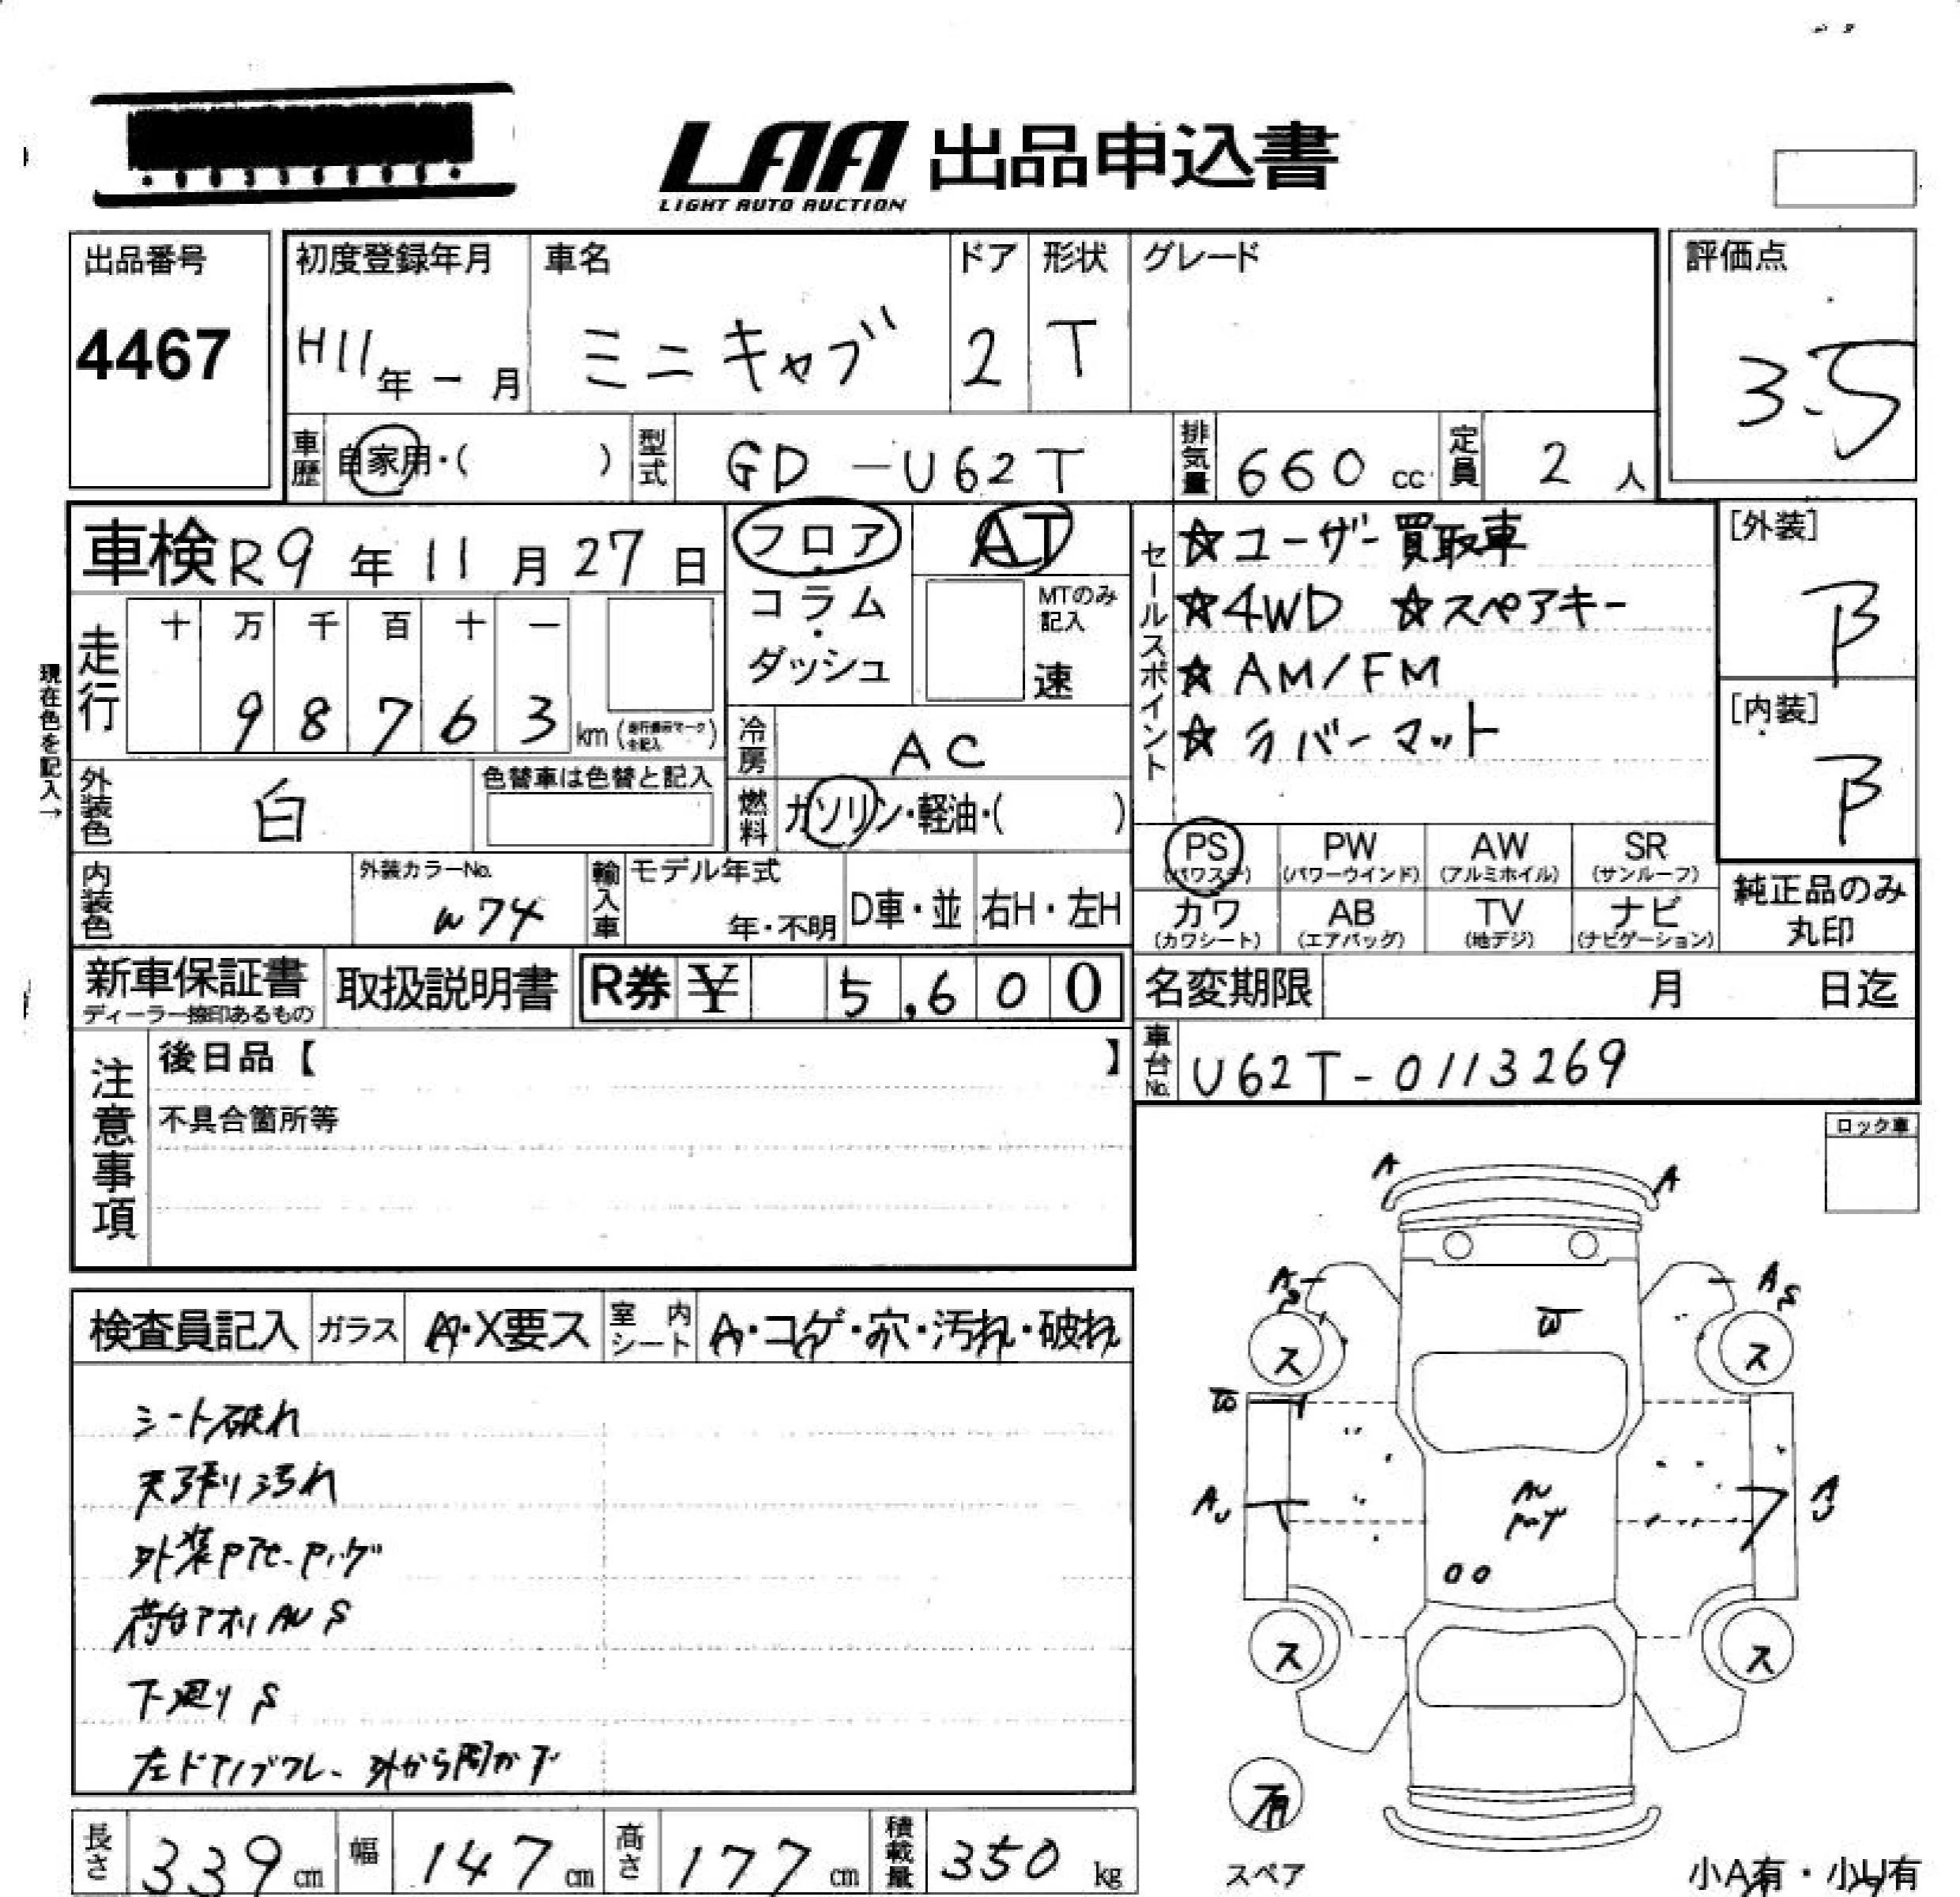 LAA 出品申込書
LIGHT AUTO AUCTION
出品番号
4467
初度登録年月
H11年 - 月
車名
ミニキャブ
ドア
2
形状
T
グレード
評価点
3.5
車歴 自家用・( )
型式 GD-U62T
排気量 660 cc
定員 2 人
車検 R9年 11月 27日
フロア・コラム・ダッシュ
AT
MTのみ記入
速
セールスポイント
☆ユーザー買取車
☆4WD ☆スペアキー
☆AM/FM
☆ラバーマット
[外装]
B
[内装]
B
現在色を記入→
走行
十 万 千 百 十 一
9 8 7 6 3 km
冷房 AC
燃料 ガソリン・軽油・( )
外装色 白
色替車は色替と記入
内装色
外装カラーNo.
W74
輸入車
モデル年式
年・不明
D車・並
右H・左H
PS (パワステ)
PW (パワーウインド)
AW (アルミホイル)
SR (サンルーフ)
カワ (カワシート)
AB (エアバッグ)
TV (地デジ)
ナビ (ナビゲーション)
純正品のみ丸印
新車保証書
ディーラー捺印あるもの
取扱説明書
R券 ¥ 5,600
名変期限 月 日迄
車台No. U62T-0113269
注意事項
後日品【 】
不具合箇所等
ロック車
検査員記入
ガラス A・X要ス
室内シート A・コゲ・穴・汚れ・破れ
シート破れ
天張り汚れ
荷台アオリ AU S
下廻り S
左ドアノブワレ 外から開かず
A A
A S
A S
W
ス ス
W
AU
AU
ス ス
有
スペア
長さ 339 cm
幅 147 cm
高さ 177 cm
積載量 350 kg
小A有・小U有